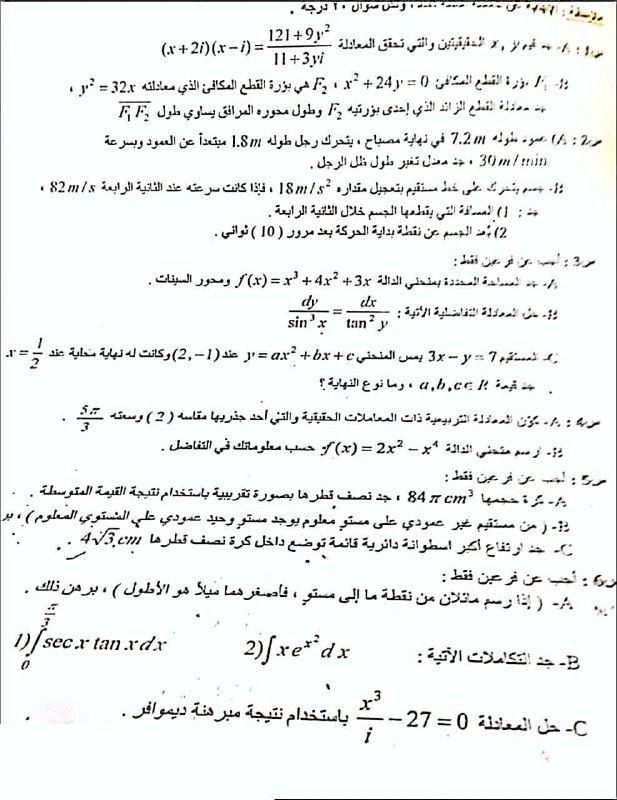 ملاحظة : سؤال ٢٠ درجة .
س1 : A- جد قيم x , y الحقيقيتين والتي تحقق المعادلة (x + 2i)(x − i) = \frac{121 + 9y^2}{11 + 3yi}
B- F_1 بؤرة القطع المكافئ x^2 + 24y = 0 ، F_2 هي بؤرة القطع المكافئ الذي معادلته y^2 = 32x ،
جد معادلة القطع الزائد الذي إحدى بؤرتيه F_2 وطول محوره المرافق يساوي طول \overline{F_1 F_2}
س2 : A) عمود طوله 7.2 m في نهاية مصباح ، يتحرك رجل طوله 1.8 m مبتعداً عن العمود وبسرعة
30 m / min ، جد معدل تغير طول ظل الرجل .
B- جسم يتحرك على خط مستقيم بتعجيل مقداره 18 m / s^2 ، فإذا كانت سرعته عند الثانية الرابعة 82 m / s ،
جد : 1) المسافة التي يقطعها الجسم خلال الثانية الرابعة .
2) بُعد الجسم عن نقطة بداية الحركة بعد مرور ( 10 ) ثواني .
س3 : أجب عن فرعين فقط :
A- جد المساحة المحددة بمنحني الدالة f(x) = x^3 + 4x^2 + 3x ومحور السينات .
B- حل المعادلة التفاضلية الآتية : \frac{dy}{\sin^3 x} = \frac{dx}{\tan^2 y}
C- المستقيم 3x − y = 7 يمس المنحني y = ax^2 + bx + c عند (2, −1) وكانت له نهاية محلية عند x = \frac{1}{2}
جد قيمة a, b, c ∈ R ، وما نوع النهاية ؟
س4 : A- كوّن المعادلة التربيعية ذات المعاملات الحقيقية والتي أحد جذريها مقاسه ( 2 ) وسعته \frac{5π}{3} .
B- ارسم منحني الدالة f(x) = 2x^2 − x^4 حسب معلوماتك في التفاضل .
س5 : أجب عن فرعين فقط :
A- كرة حجمها 84 π cm^3 ، جد نصف قطرها بصورة تقريبية باستخدام نتيجة القيمة المتوسطة .
B- ( من مستقيم غير عمودي على مستو معلوم يوجد مستو وحيد عمودي على المستوي المعلوم ) ، بر
C- جد ارتفاع أكبر اسطوانة دائرية قائمة توضع داخل كرة نصف قطرها 4√3 cm .
س6 : أجب عن فرعين فقط :
A- ( إذا رسم مائلان من نقطة ما إلى مستو ، فأصغرهما ميلاً هو الأطول ) ، برهن ذلك .
B- جد التكاملات الآتية : 1) \int_0^{\frac{π}{3}} sec x tan x dx 2) \int x e^{x^2} d x
C- حل المعادلة \frac{x^3}{i} − 27 = 0 باستخدام نتيجة مبرهنة ديموافر .